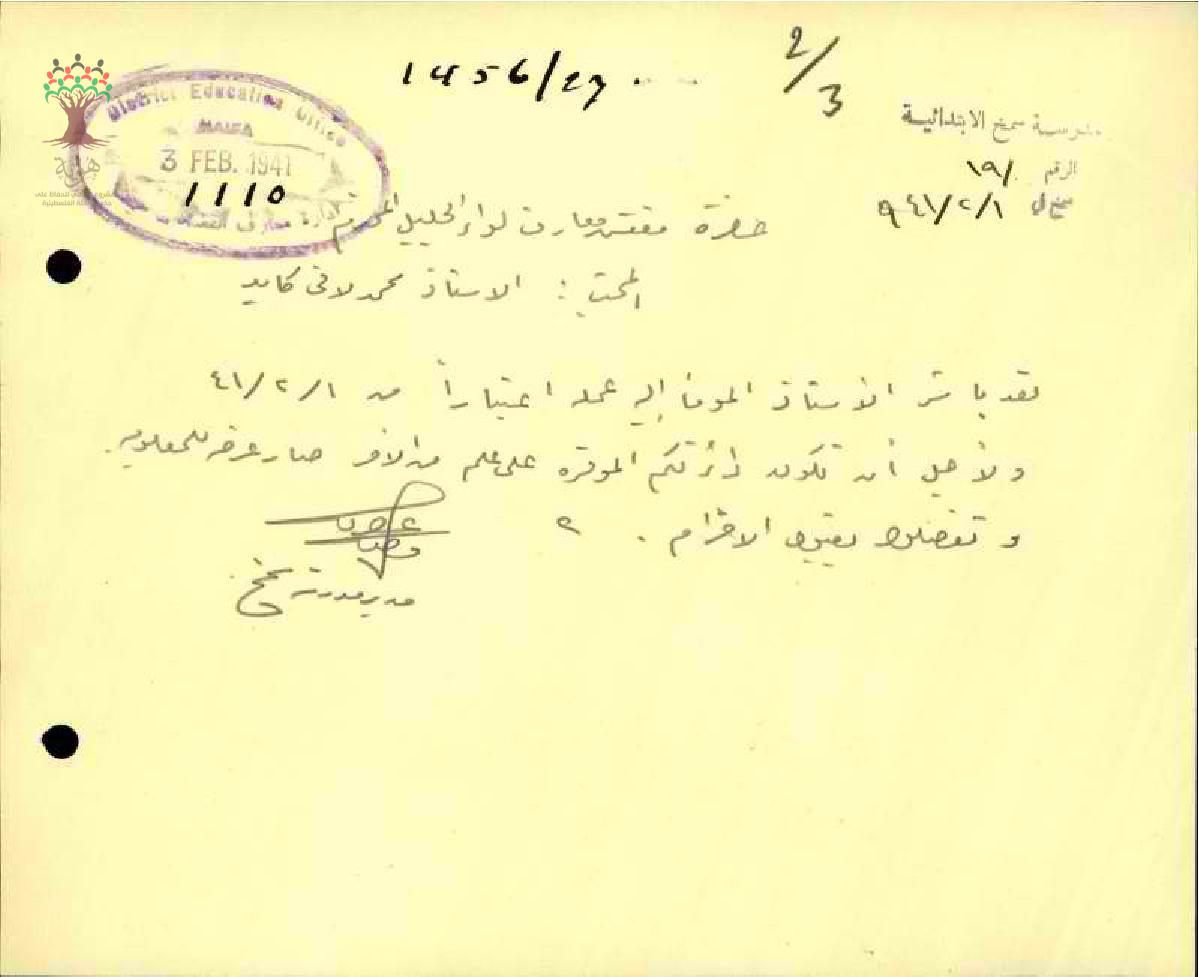 1456/27
2/3
District Education Office
HAIFA
3 FEB. 1941
1110
هوية
مدرسة سمخ الابتدائية
الرقم /١٩
سمخ في ٩٤١/٢/١
حضرة مفتش معارف لواء الجليل المحترم
المبحث : الاستاذ محمد لافي كايد
لقد باشر الأستاذ المومأ إليه عمله اعتباراً من ٤١/٢/١
ولأجل أن تكون دائرتكم الموقرة على علم من الأمر صار عرضه للمعلومية.
وتفضلوا بقبول الاحترام .
مدير مدرسة سمخ